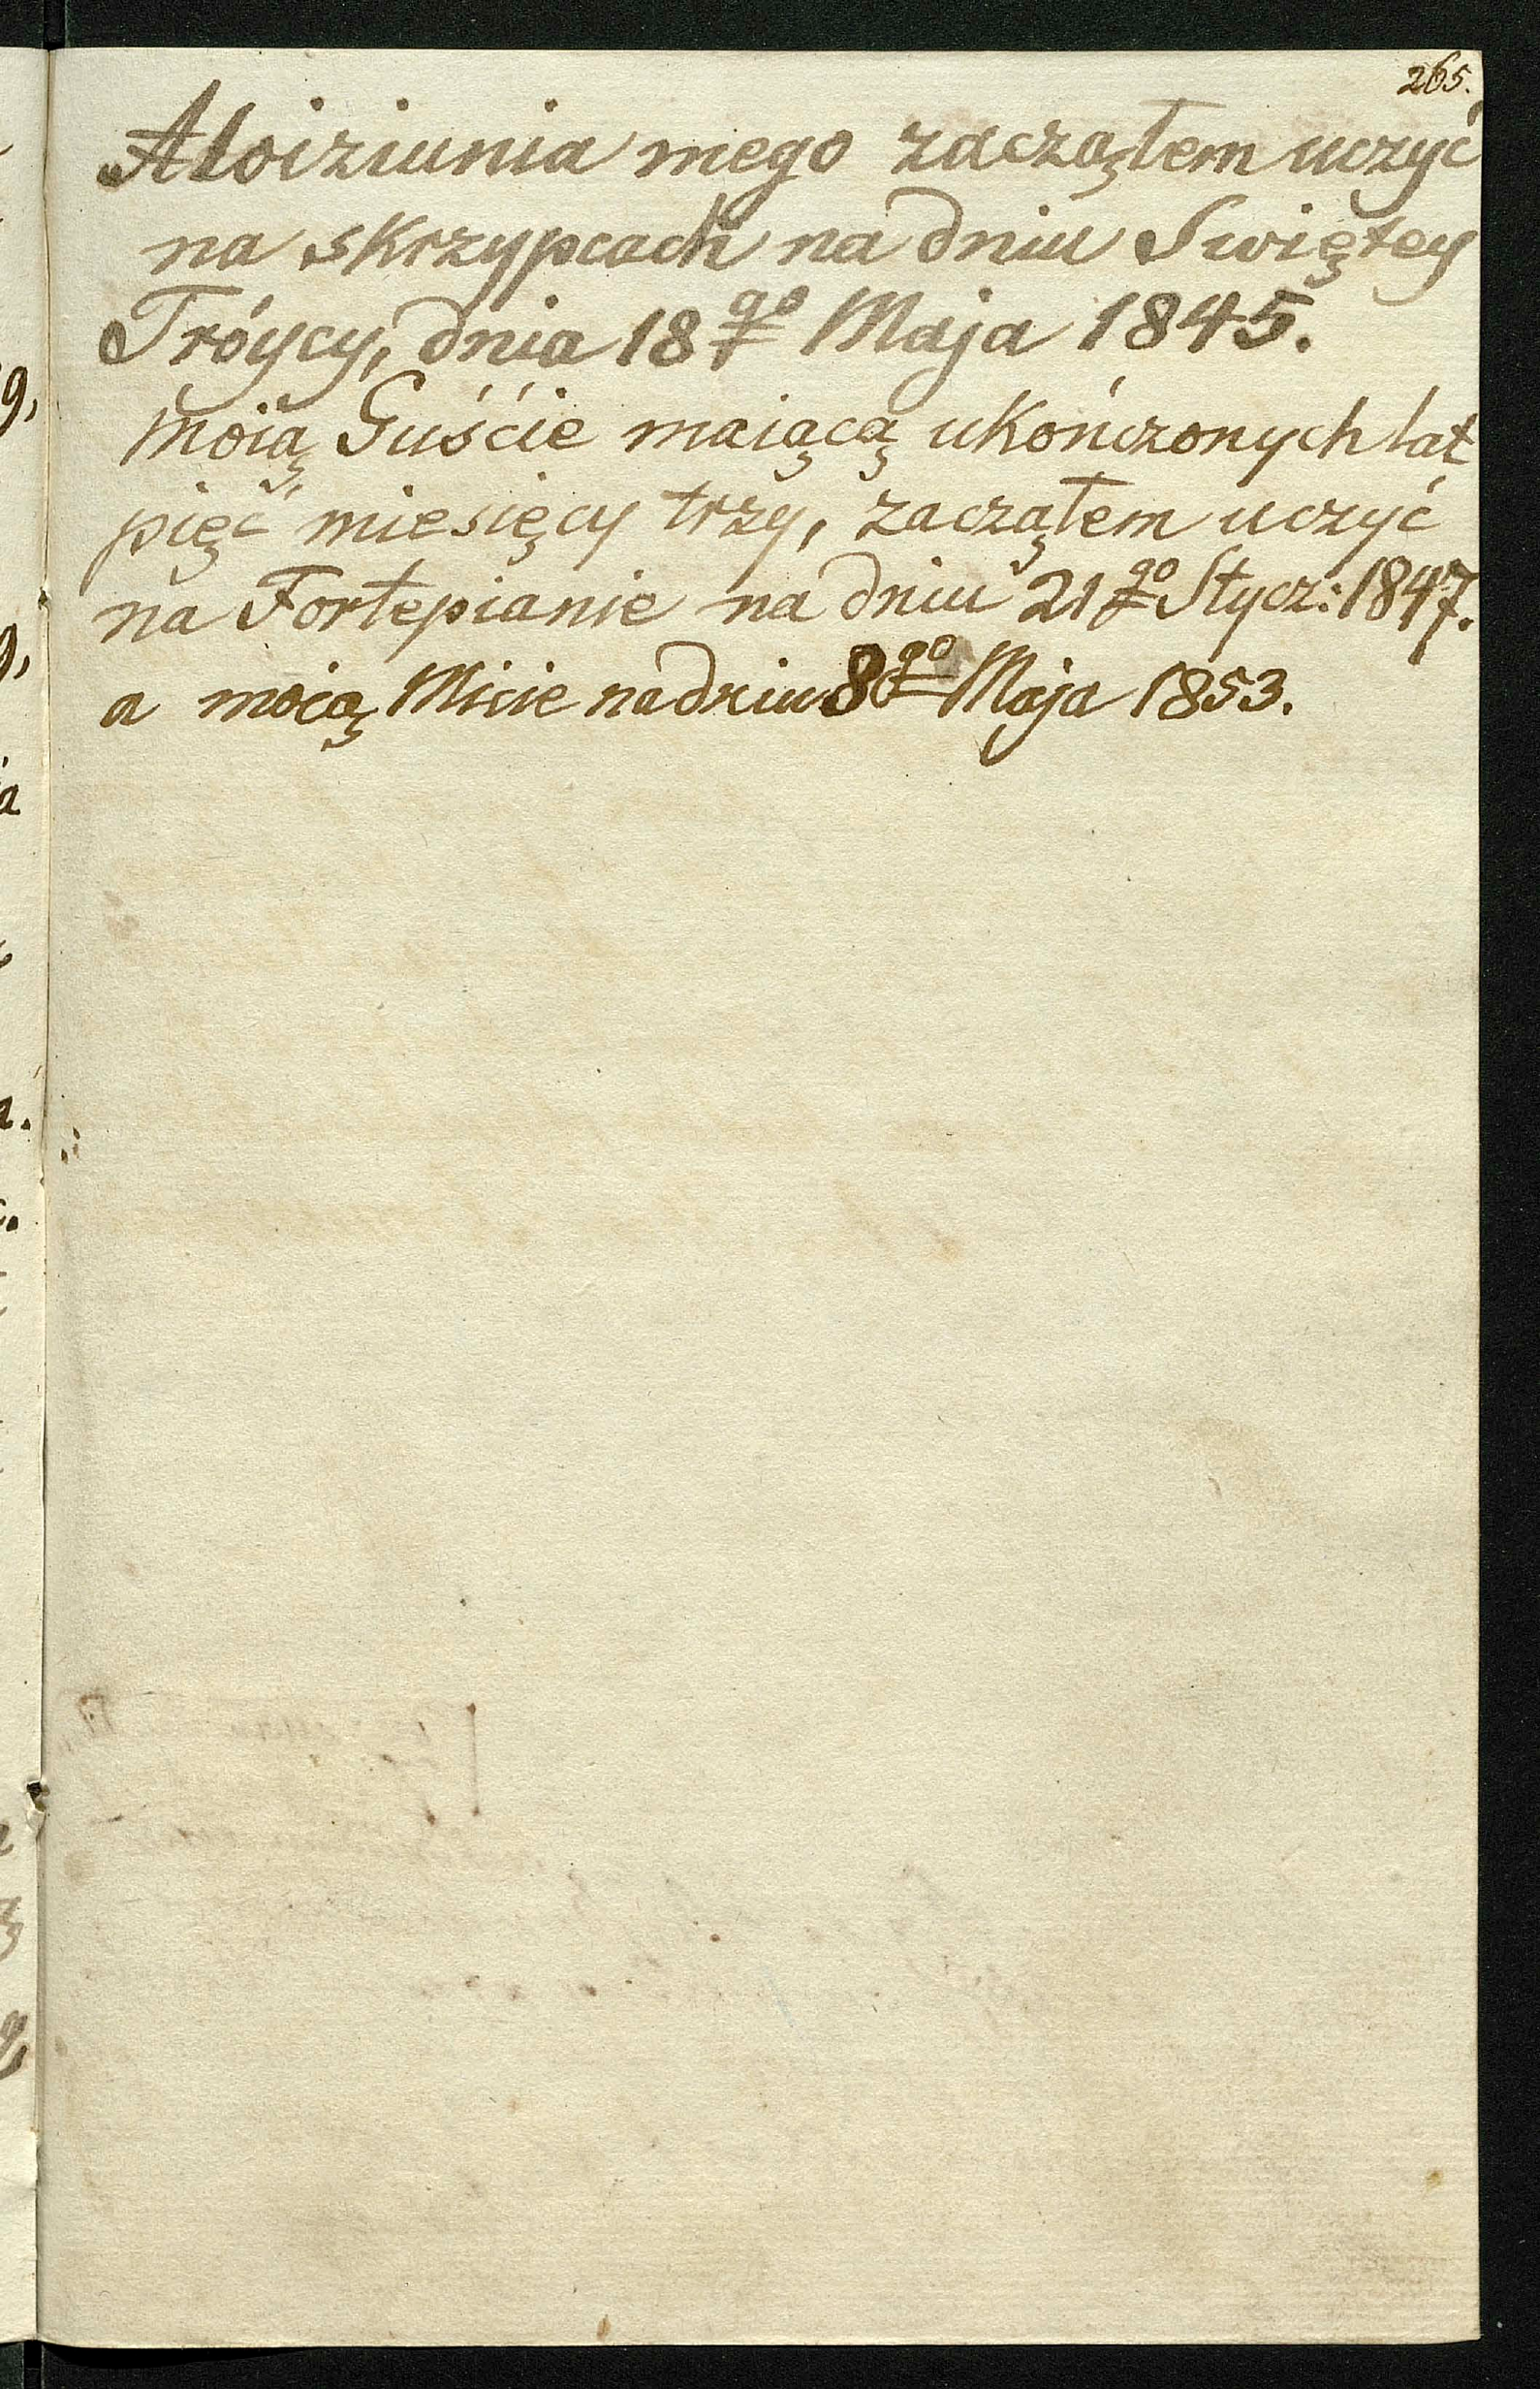 265.
Aloiziunia mego zacząłem uczyć
na skrzypcach na dniu Swiętey
Tróycy, dnia 18go Maja 1845.
moią Guśćie maiącą ukończonych lat
pięć miesięcy trzy, zacząłem uczyć
na Fortepianie na dniu 21go Stycz: 1847.
a moią Micie na dniu 8go Maja 1853.